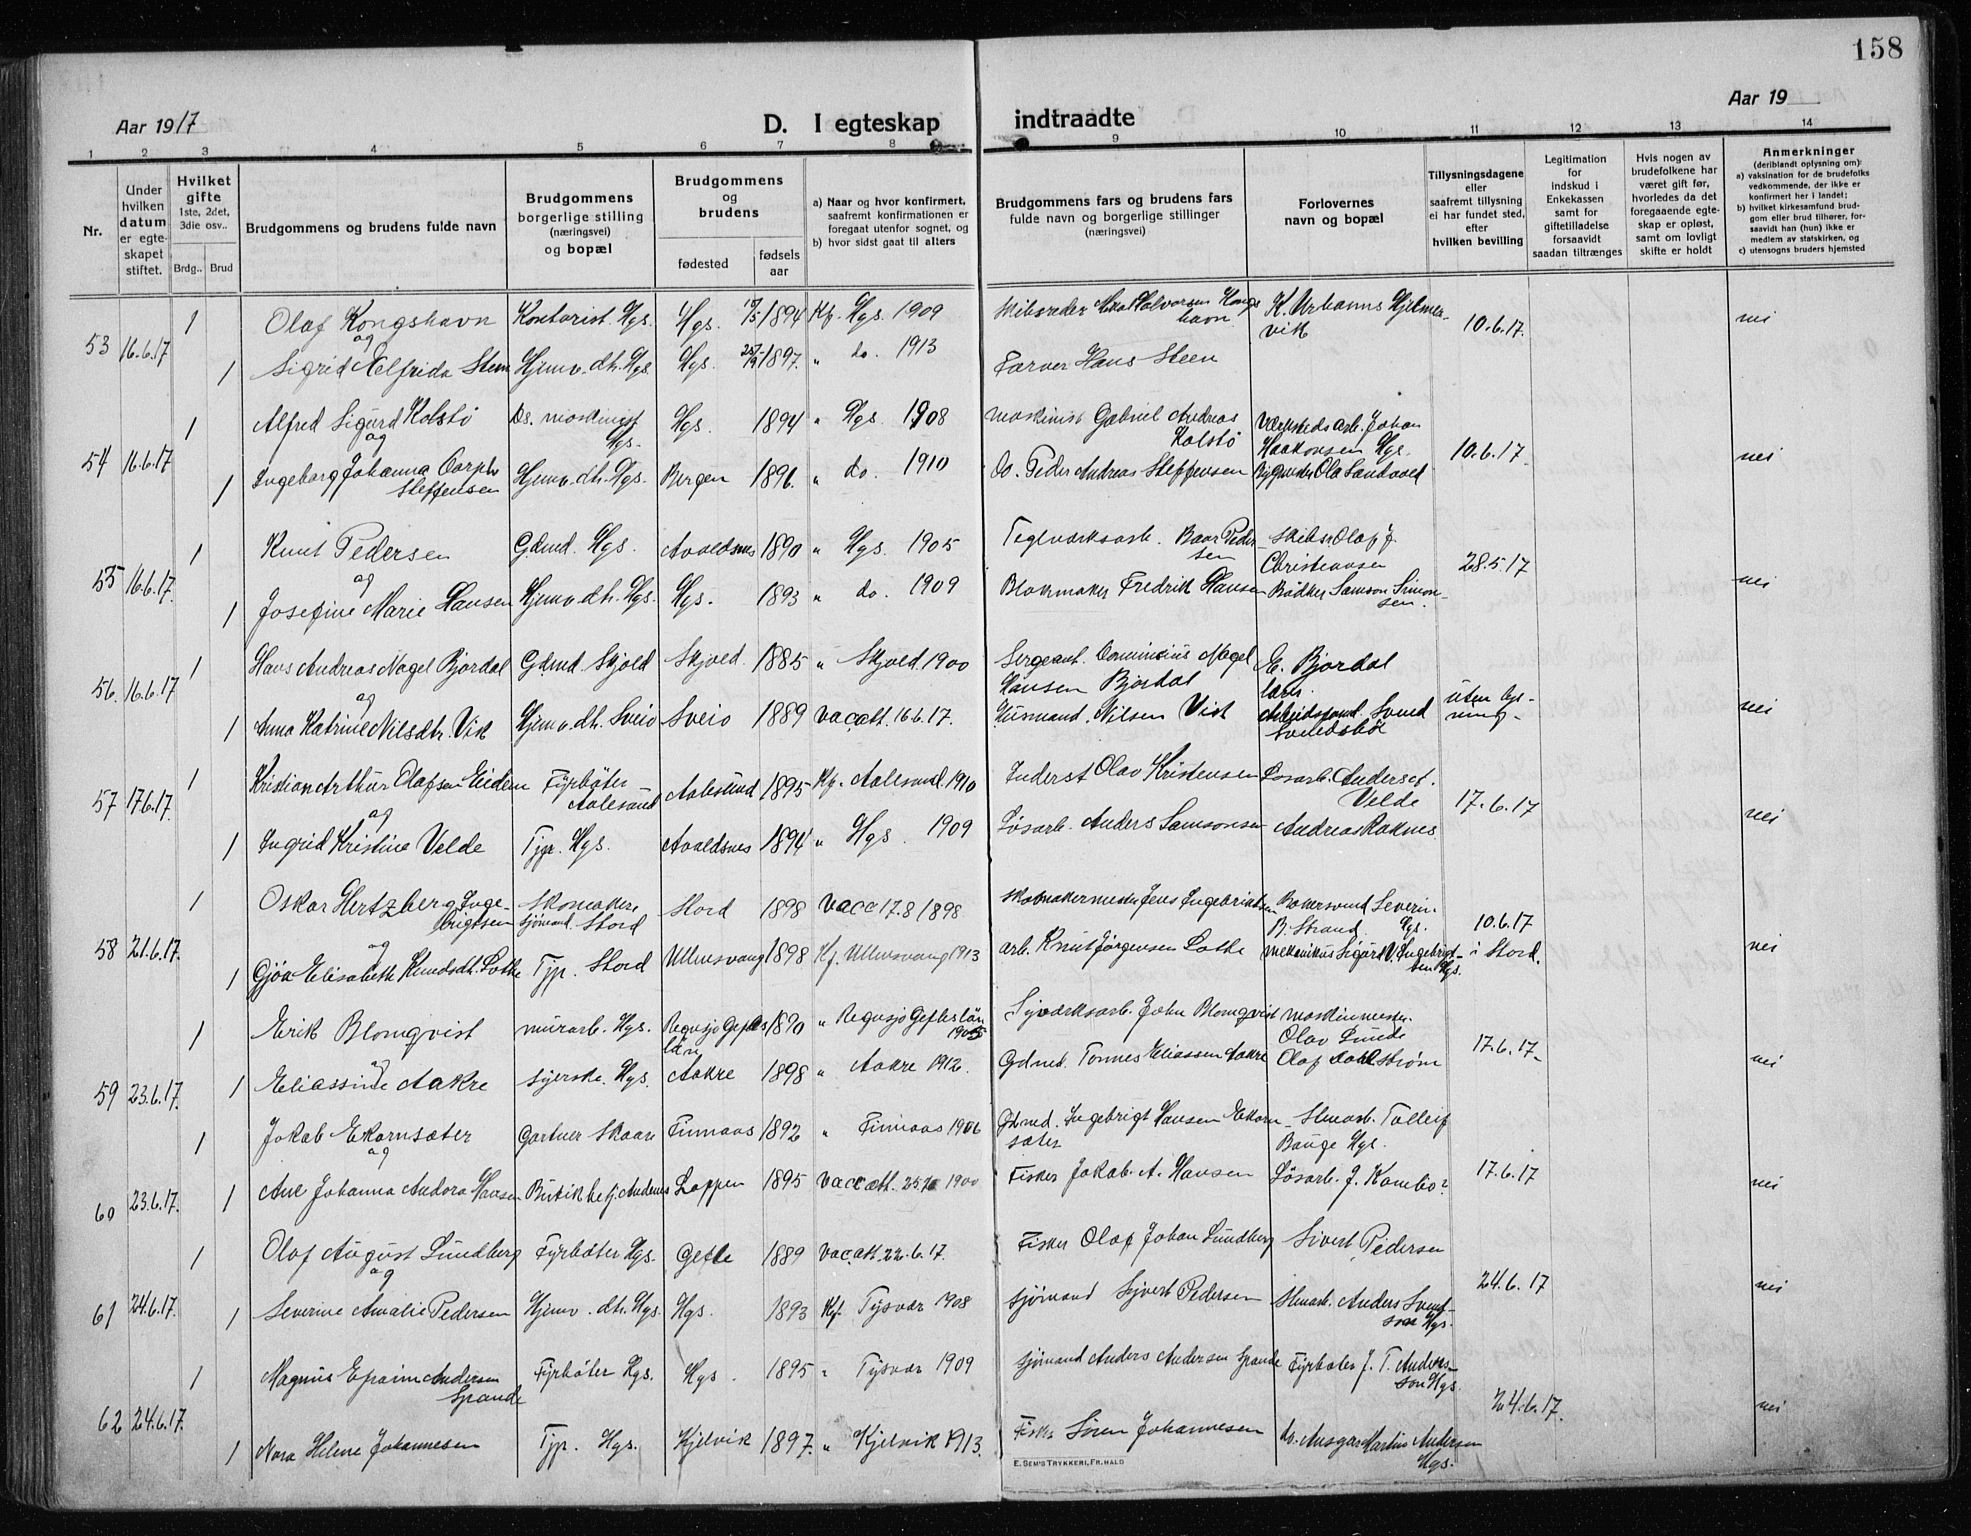 158
Aar 1917
D. I egteskap indtraadte
Aar 19
1 2 3 4 5 6 7 8 9 10 11 12 13 14
Nr.
Under hvilken datum er egteskapet stiftet.
Hvilket gifte 1ste, 2det, 3die osv..
Brdg.. Brud
Brudgommens og brudens fulde navn
Brudgommens borgerlige stilling (næringsvei) og bopæl
Brudgommens og brudens
fødested
fødsels aar
a) Naar og hvor konfirmert, saafremt konfirmationen er foregaat utenfor sognet, og
b) hvor sidst gaat til alters
Brudgommens fars og brudens fars fulde navn og borgerlige stillinger (næringsvei)
Forlovernes navn og bopæl
Tillysningsdagene eller saafremt tillysning ei har fundet sted, efter hvilken bevilling
Legitimation for indskud i Enkekassen samt for giftetilladelse forsaavidt saadan tiltrænges
Hvis nogen av brudefolkene har været gift før, hvorledes da det foregaaende egteskap er opløst, samt om lovligt skifte er holdt
Anmerkninger (deriblandt oplysning om):
a) vaksination for de brudefolks vedkommende, der ikke er konfirmert her i landet;
b) hvilket kirkesamfund brudgom eller brud tilhører, forsaavidt han (hun) ikke er medlem av statskirken, og
c) utensogns bruders hjemsted
53 16.6.17 1 Olaf Kongshavn Kontorist. Hgs. Hgs. 1894 Kf. Hgs. 1909 Skibsreder Halvorsen Kongshavn K. Urbanus Hjelmervik 10.6.17. nei
og
1 Sigrid Alfrida Steen Hjemv. dtr. Hgs. Hgs. 1897. " do. 1913 Farver Hans Steen
54 16.6.17 1 Alfred Sigurd Kolstø Ds. maskinist Hgs. Hgs. 1894 " Hgs. 1908 Maskinist Gabriel Andreas Kolstø Værkstedsarb. Johan Haakonsen Hgs. 10.6.17. nei
og
1 Ingeborg Johanna Steffensen Hjemv. dtr. Hgs. Bergen 1896. " do. 1910 do. Peder Andreas Steffensen Ola Sandvold
55 16.6.17. 1 Knut Pedersen Gdmd. Hgs. Avaldsnes 1890 " Hgs. 1905 Teglværksarb. Baar Pedersen Skibsr Olaf J. Christensen 28.5.17 nei
og
1 Josefine Marie Hansen Hjemv. dtr. Hgs. Hgs. 1893 " do. 1909 Blokmaker Fredrik Hansen Bødker Samson Simonsen.
56. 16.6.17 1 Hans Andreas Nagel Bjordal Gdmd. Skjold Skjold. 1885 " Skjold. 1900 Sergeant. Nagel Hansen Bjordal E. Bjordal uten lysning. nei
og
1 Anna Katrine Nilsdtr. Vik Hjemv. dtr. Sveio Sveio 1889 Vac.att. 16.6.17. Husmand. Nilsen Vist Arbeidsformd. Svend
57 17.6.17. 1 Kristian Arthur Olafsen Eidem Fyrbøter Aalesund Aalesund 1895 Kf. Aalesund. 1910 Inderst Olav Kristensen Løsarb. Anders Velde 17.6.17 nei
og
1 Ingrid Kristine Velde Tjp. Hgs. Avaldsnes 1894 " Hgs. 1909 Løsarb. Anders Samsonsen Andreas Raknes
58 21.6.17. 1 Oskar Hertzberg Ingebrigtsen Skomaker sjømand. Stord Stord 1898 Vacc 17.8/1898 Skomakermester Jens Ingebrigtsen Bokersvend Severin B. Strand. Hgs. 10.6.17 i Stord. nei
og
1 Gjøa Elisabeth Knudsdt. Lothe Tjp. Stord Ullensvang 1898 Kf. Ullensvang 1913 arb. Knut Jørgensen Lothe Mekanikus Sigurd V. Ingebrigtsen Hgs.
59 23.6.17. 1 Erik Blomqvist Murarb. Hgs. Regnsjø Gefles län 1890 " Regnsjø Gefles län 1905 Syværksarb. John Blomqvist Maskinmester Olav Lunde 17.6.17. nei
og
1 Eliassine Aakre Syerske. Hgs. Aakre 1898 " Aakre 1912. Gdmd. Tønnes Eliassen Aakre Olaf Dahlstrøm
60 23.6.17. 1 Jakob Ekornsæter Gartner Skaare Finnaas 1892 " Finnaas 1906 Gdmd. Ingebrigt Hansen Ekornsæter Stenarb. Tolleif Bauge Hgs. 17.6.17 nei
og
1 Ane Johanna Andora Hansen Butikbetj. Andenes Loppen 1895 Vacc att. 1900 Fisker Jakob A. Hansen Løsarb. J. Kambo?
61 24.6.17. 1 Olaf August Lundberg Fyrbøter Hgs. Gefle 1889 Vac.att. 22.6.17. Fisker Olaf Johan Lundberg Sivert Pedersen 24.6.17 nei
og
1 Severine Amalie Pedersen Hjemv. dtr. Hgs. Hgs. 1893 Kf. Tysvær 1908 Sjømand Syvert Pedersen Stenarb. Anders Svendsen Hgs.
62 24.6.17. 1 Magnus Efraim Andersen Spande Fyrbøter Hgs. Hgs. 1895 " Tysvær 1909 Sjømand Anders Andersen Spande Fyrbøter J. T. Andersson Hgs. 24.6.17. nei
1 Nora Helene Johannesen Tjp. Hgs. Kjelvik 1897. " Kjelvik 1913. Fisker Søren Johannesen do. Ansgar Martin Andersen Hgs.
E. SEM'S TRYKKERI, FR.HALD